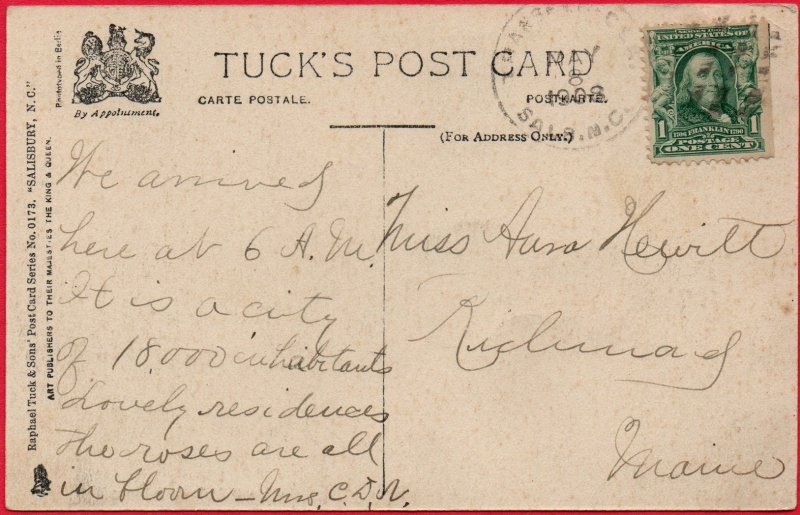 TUCK'S POST CARD
CARTE POSTALE.
POSTKARTE.
(FOR ADDRESS ONLY.)
By Appointment.
Phototyped in Berlin
Raphael Tuck & Sons' Post Card Series No. 0173. "SALISBURY, N. C."
ART PUBLISHERS TO THEIR MAJESTIES THE KING & QUEEN.
1908
SALS. N.C.
SERIES 1902
UNITED STATES OF
AMERICA
1706 FRANKLIN 1790
1 POSTAGE 1
ONE CENT
We arrived
here at 6 A.M.
It is a city
of 18000 inhabitants
Lovely residences
The roses are all
in bloom - Mrs. C.D.N.
Miss Aura Hewitt
Richmond
Maine